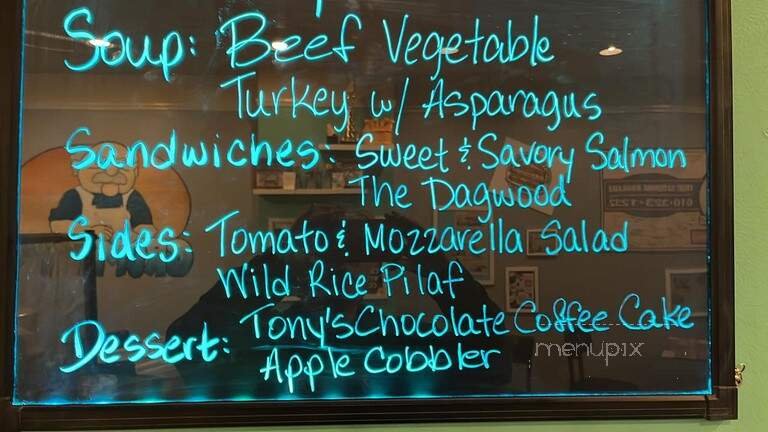 Soup: Beef Vegetable
Turkey w/ Asparagus
Sandwiches: Sweet & Savory Salmon
The Dagwood
Sides: Tomato & Mozzarella Salad
Wild Rice Pilaf
Dessert: Tony's Chocolate Coffee Cake
Apple Cobbler
menupix